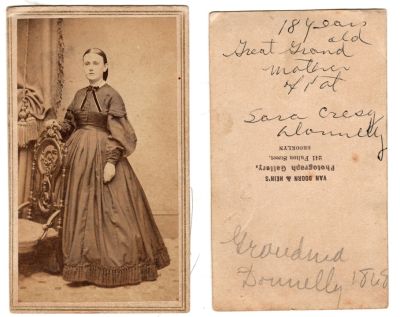 18 years
old
Great Grand
Mother
of Pat
Sara Cresy
Donnelly
VAN DOORN & HEIN'S
Photograph Gallery,
241 Fulton Street,
BROOKLYN
Grandma
Donnelly 1868